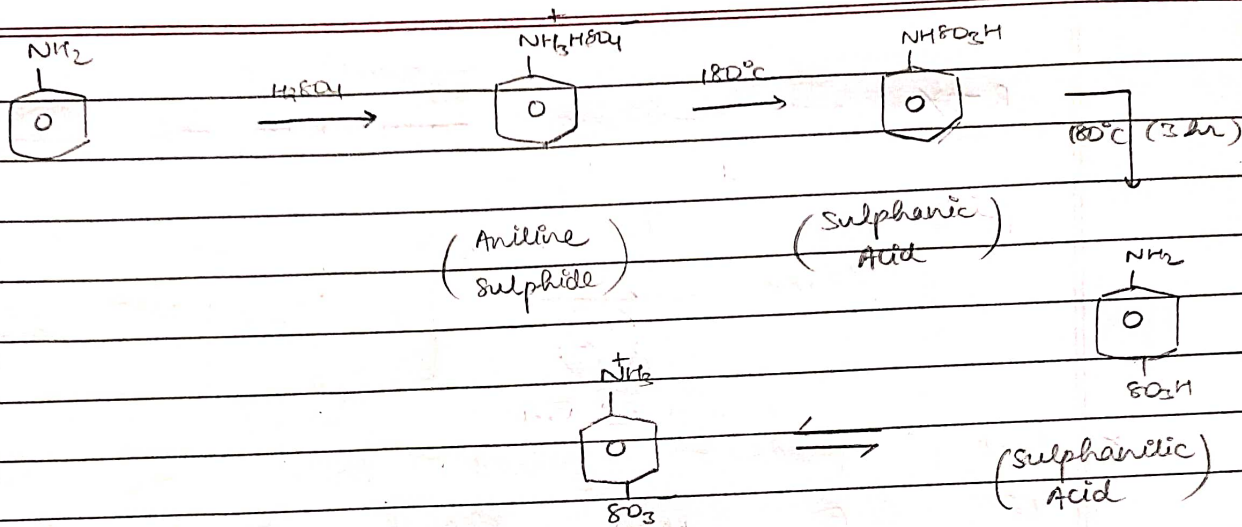 NH2
H2SO4
+
NH3HSO4
180°C
NHSO3H
180°C (3 hr)
(Aniline
Sulphide)
(Sulphanic
Acid)
NH2
SO3H
(Sulphanilic
Acid)
+
NH3
SO3